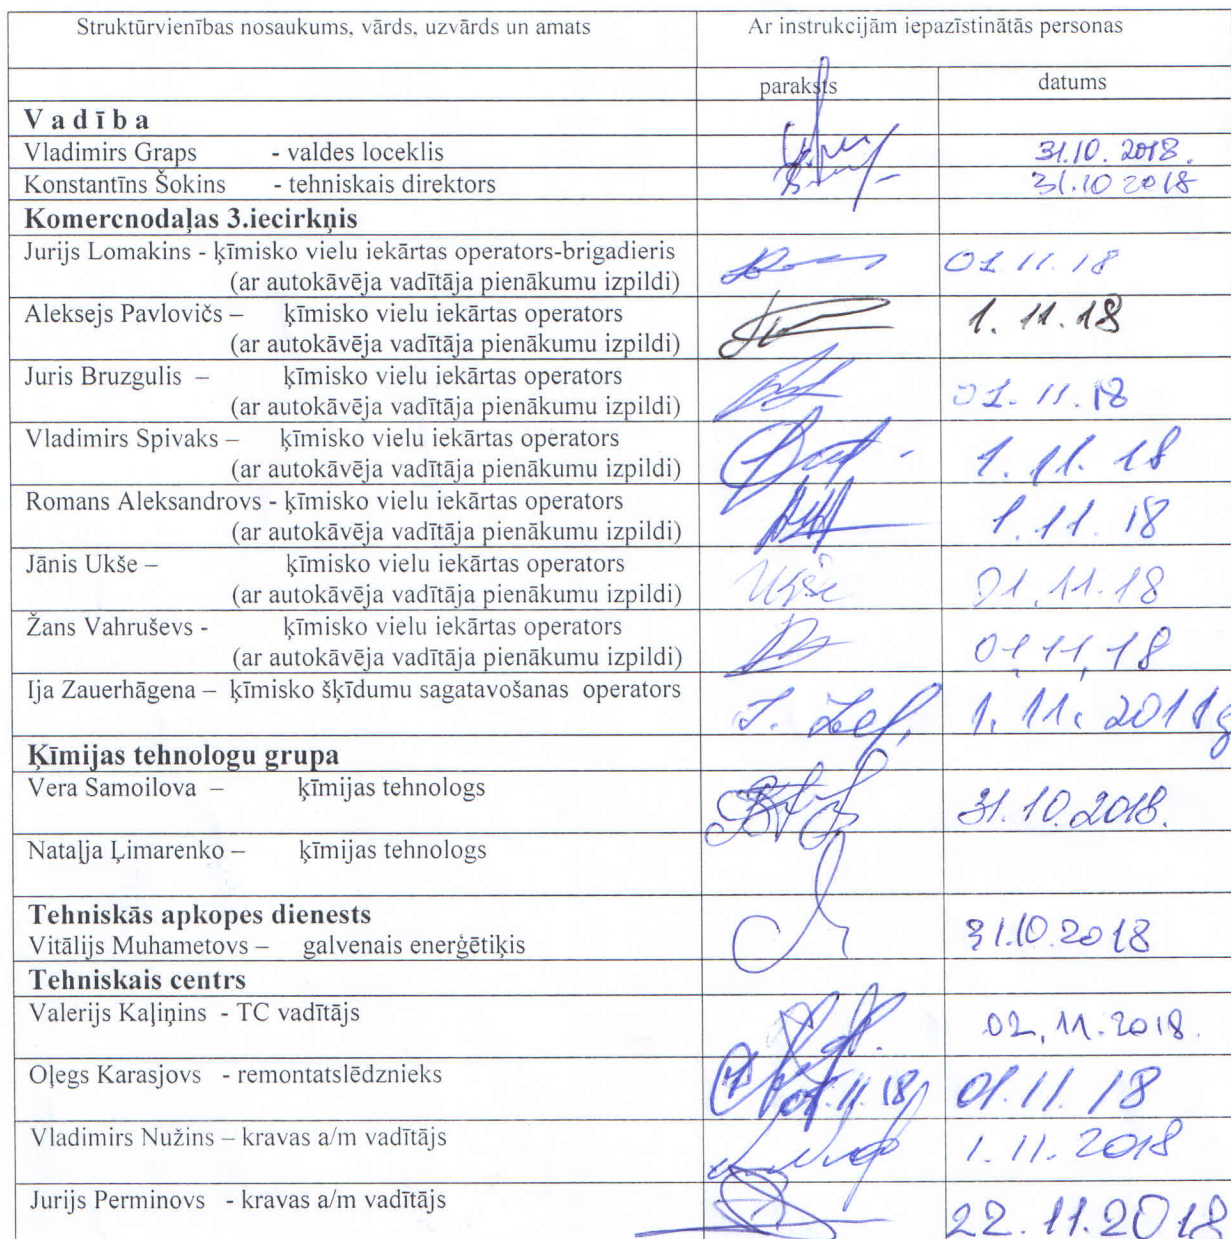 Struktūrvienības nosaukums, vārds, uzvārds un amats Ar instrukcijām iepazīstinātās personas
paraksts datums
Vadība
Vladimirs Graps - valdes loceklis 31.10. 2018.
Konstantīns Šokins - tehniskais direktors 31.10 2018
Komercnodaļas 3.iecirkņis
Jurijs Lomakins - ķīmisko vielu iekārtas operators-brigadieris 01 11. 18
(ar autokāvēja vadītāja pienākumu izpildi)
Aleksejs Pavlovičs – ķīmisko vielu iekārtas operators 1. 11. 18
(ar autokāvēja vadītāja pienākumu izpildi)
Juris Bruzgulis – ķīmisko vielu iekārtas operators
(ar autokāvēja vadītāja pienākumu izpildi) 01. 11. 18
Vladimirs Spivaks – ķīmisko vielu iekārtas operators
(ar autokāvēja vadītāja pienākumu izpildi) 1. 11. 18
Romans Aleksandrovs - ķīmisko vielu iekārtas operators
(ar autokāvēja vadītāja pienākumu izpildi) 1. 11. 18
Jānis Ukše – ķīmisko vielu iekārtas operators
(ar autokāvēja vadītāja pienākumu izpildi) Ukše 01, 11. 18
Žans Vahruševs - ķīmisko vielu iekārtas operators
(ar autokāvēja vadītāja pienākumu izpildi) 01, 11, 18
Ija Zauerhāgena – ķīmisko šķīdumu sagatavošanas operators
Ķīmijas tehnologu grupa
Vera Samoilova – ķīmijas tehnologs 31. 10. 2018.
Nataļja Ļimarenko – ķīmijas tehnologs
Tehniskās apkopes dienests
Vitālijs Muhametovs – galvenais enerģētiķis 31.10.2018
Tehniskais centrs
Valerijs Kaļiņins - TC vadītājs 02, 11. 2018.
Oļegs Karasjovs - remontatslēdznieks 01.11.18 01. 11. 18
Vladimirs Nužins – kravas a/m vadītājs 1. 11. 2018
Jurijs Perminovs - kravas a/m vadītājs 22. 11. 2018